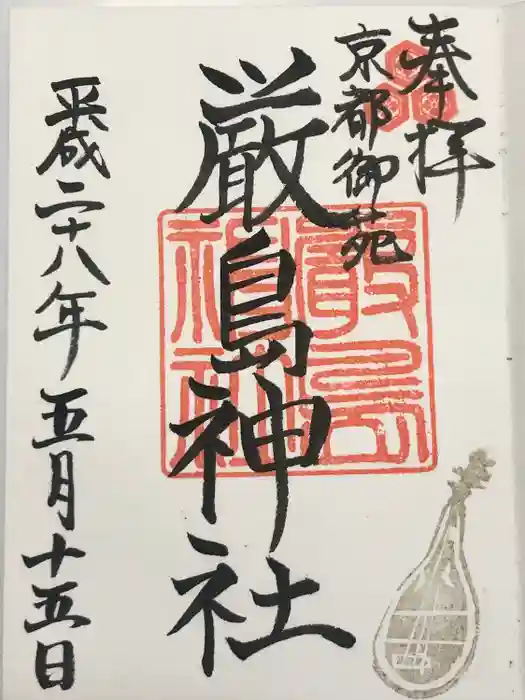 奉拝
京都御苑
厳島神社
平成二十八年五月十五日
嚴島
神社